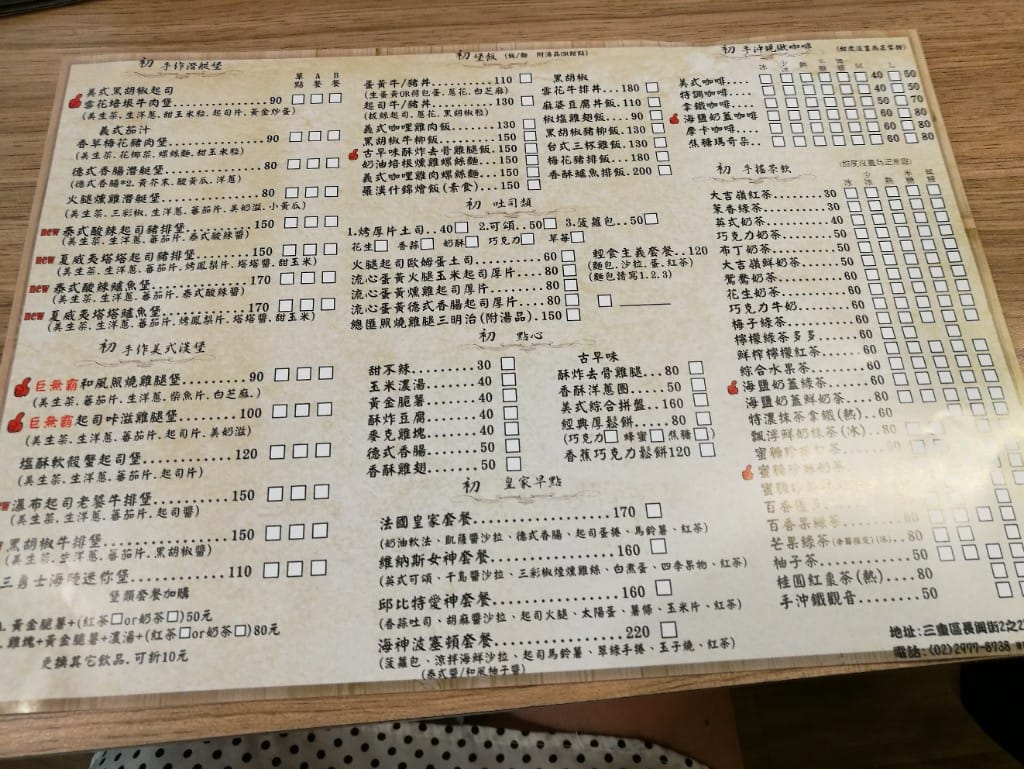 初 手作潛艇堡
單點 A餐 B餐
美式黑胡椒起司
雪花培根牛肉堡 90
(美生菜.生洋蔥.甜玉米粒.起司片.黃金炒蛋)
義式茄汁
香草梅花豬肉堡 90
(美生菜.花椰菜.螺絲麵.甜玉米粒)
德式香腸潛艇堡 80
(德式香腸*2.黃芥末.酸黃瓜.洋蔥)
火腿燻雞潛艇堡 80
(美生菜.三彩椒.生洋蔥.蕃茄片.美奶滋.小黃瓜)
new 泰式酸辣起司豬排堡 150
(美生菜.生洋蔥.蕃茄片.泰式酸辣醬)
new 夏威夷塔塔起司豬排堡 150
(美生菜.生洋蔥.蕃茄片.烤鳳梨片.塔塔醬.甜玉米)
new 泰式酸辣鱸魚堡 170
(美生菜.生洋蔥.蕃茄片.泰式酸辣醬)
new 夏威夷塔塔鱸魚堡 170
(美生菜.生洋蔥.蕃茄片.烤鳳梨片.塔塔醬.甜玉米)
初 手作美式漢堡
巨無霸和風照燒雞腿堡 90
(美生菜.生洋蔥.蕃茄片.柴魚片.白芝麻.)
巨無霸起司咔滋雞腿堡 100
(美生菜.生洋蔥.蕃茄片.起司片.美奶滋)
塩酥軟殼蟹起司堡 120
(美生菜.生洋蔥.蕃茄片.起司片)
瀑布起司老饕牛排堡 150
(美生菜.生洋蔥.蕃茄片.起司醬)
黑胡椒牛排堡 150
(美生菜.生洋蔥.蕃茄片.黑胡椒醬)
三勇士海陸迷你堡 110
堡類套餐加購
黃金脆薯+(紅茶□or奶茶□)50元
雞塊+黃金脆薯+濃湯+(紅茶□or奶茶□)80元
更換其它飲品.可折10元
初 堡飯 (飯/麵 附湯品
蛋黃牛/豬丼 110
(生蛋黃OR荷包蛋.蔥花.白芝麻)
起司牛/豬丼 130
(披絲起司.蔥花.黑胡椒粒)
義式咖哩雞肉飯 130
義式黑胡椒豬柳飯 150
古早味酥炸去骨雞腿飯 150
奶油培根燻雞螺絲麵 150
義式咖哩雞肉螺絲麵 150
羅漢什錦燴飯(素食) 150
黑胡椒
雪花牛排丼 180
麻婆豆腐丼飯 110
椒塩雞翅飯 90
黑胡椒豬柳飯 130
台式三杯雞飯 130
梅花豬排飯 180
香酥鱸魚排飯 200
初 吐司類
1.烤厚片土司 40 2.可頌 50 3.菠蘿包 50
花生 香蒜 奶酥 巧克力 草莓
火腿起司歐姆蛋土司 60
流心蛋黃火腿玉米起司厚片 80
流心蛋黃燻雞起司厚片 80
流心蛋黃德式香腸起司厚片 80
總匯照燒雞腿三明治(附湯品) 150
輕食主義套餐 120
(麵包.沙拉.蛋.紅茶)
(麵包請寫1.2.3)
初 點心
甜不辣 30
玉米濃湯 40
黃金脆薯 40
酥炸豆腐 40
麥克雞塊 40
德式香腸 50
香酥雞翅 50
古早味
酥炸去骨雞腿 80
香酥洋蔥圈 50
美式綜合拼盤 160
經典厚鬆餅 80
(巧克力 蜂蜜 焦糖)
香蕉巧克力鬆餅 120
初 皇家早點
法國皇家套餐 170
(奶油軟法、凱薩醬沙拉、德式香腸、起司蛋捲、馬鈴薯、紅茶)
維納斯女神套餐 160
(英式可頌、千島醬沙拉、三彩椒煙燻雞絲、白煮蛋、四季果物、紅茶)
邱比特愛神套餐 160
(香蒜吐司、胡麻醬沙拉、起司火腿、太陽蛋、薯條、玉米片、紅茶)
海神波塞頓套餐 220
(菠蘿包、涼拌海鮮沙拉、起司馬鈴薯、翠綠手捲、玉子燒、紅茶)
(泰式醬/和風柚子醬)
初 手沖現做咖啡
冰 少冰 熱 M L
美式咖啡 40 50
特調咖啡 40 50
拿鐵咖啡 50 70
海塩奶蓋咖啡 60 80
摩卡咖啡 60 80
焦糖瑪奇朵 60 80
初 手搖茶飲
大吉嶺紅茶 30
茉香綠茶 30
英式奶茶 40
巧克力奶茶 50
布丁奶茶 50
大吉嶺鮮奶茶 50
鴛鴦奶茶 60
花生奶茶 60
巧克力牛奶 60
梅子綠茶 60
檸檬綠茶多多 60
鮮榨檸檬紅茶 60
綜合水果茶 60
海鹽奶蓋綠茶 60
海鹽奶蓋鮮奶茶
特濃抹茶拿鐵(熱) 60
飄浮鮮奶抹茶(冰) 80
百香果綠茶
芒果綠茶(季節限定)(冰) 80
柚子茶 50
桂圓紅棗茶(熱) 80
手沖鐵觀音 50
地址:三重區長興街2之2
電話:(02)2977-8738